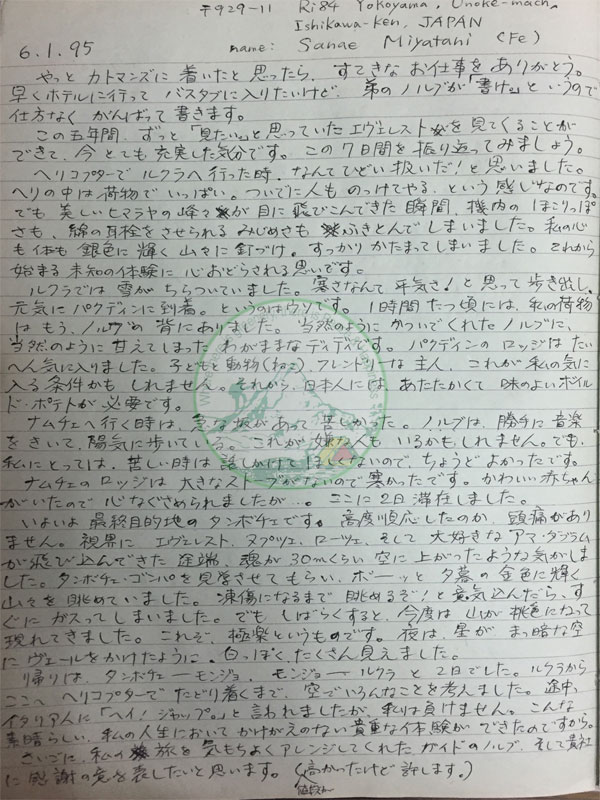 〒929-11 Ri84 Yokoyama, Unoke-mach,
Ishikawa-Ken, JAPAN
6.1.95 name: Sanae Miyatani (Fe)
やっと カトマンズに 着いたと 思ったら、すてきな お仕事を ありがとう。
早くホテルに行って バスタブに入りたいけど、弟の ノルブが「書け。」と いうので
仕方なく がんばって 書きます。
この五年間、ずっと「見たい。」と 思っていた エヴェレストを 見てくることが
できて、今 とても 充実した気分です。この 7日間を 振り返って みましょう。
ヘリコプターで ルクラへ行った時、なんて ひどい 扱いだ！と 思いました。
ヘリの 中は 荷物で いっぱい。ついでに 人も のっけてやる、という 感じなのです。
でも 美しい ヒマラヤの 峰々が 目に 飛びこんできた 瞬間、機内の ほこりっぽ
さも、綿の 耳栓を させられる みじめさも ふきとんで しまいました。私の心
も 体も 銀色に 輝く 山々に 釘づけ。すっかり かたまって しまいました。これから
始まる 未知の体験に 心おどらされる 思いです。
ルクラでは 雪が ちらついていました。寒さなんて 平気さ！と 思って 歩き出し、
元気に パクディンに 到着。というのは ウソです。1時間 たつ頃には、私の荷物
は もう、ノルブの 背に ありました。当然のように かついでくれた ノルブに、
当然のように 甘えてしまった わがままな ディディです。パクディンの ロッジは たい
へん 気に入りました。子どもと 動物(ねこ)、フレンドリーな 主人、これが 私の気に
入る 条件かも しれません。それから、日本人には、あたたかくて 味のよい ボイル
ド・ポテトが 必要です。
ナムチェへ 行く時は、急な坂が あって 苦しかった。ノルブは、勝手に 音楽
を きいて、陽気に 歩いている。これが 嫌な人も いるかも しれません。でも、
私に とっては、苦しい時は 話しかけて ほしくないので、ちょうど よかったです。
ナムチェの ロッジは 大きな ストーブが ないので 寒かったです。かわいい 赤ちゃん
が いたので 心なぐさめられましたが…。ここに 2日 滞在しました。
いよいよ 最終目的地の タンボチェです。高度順応したのか、頭痛が あり
ません。視界に エヴェレスト、ヌプツェ、ローツェ、そして 大好きな アマ・ダブラム
が 飛び込んできた 途端、魂が 30mくらい 空に 上がったような 気がしま
した。タンボチェ・ゴンパを 見学させて もらい、ボーッと 夕暮の 金色に 輝く
山々を 眺めていました。凍傷になるまで 眺めるぞ！と 意気込んだら、す
ぐに ガスって しまいました。でも、しばらくすると、今度は 山が 桃色になって
現れてきました。これぞ、極楽というものです。夜は、星が まっ暗な空
に ヴェールを かけたように、白っぽく たくさん 見えました。
帰りは、タンボチェ ― モンジョ、モンジョ ― ルクラ と 2日でした。ルクラから
ここへ ヘリコプターで たどり着くまで、空で いろんなことを 考えました。途中、
イタリア人に「ヘイ！ジャップ。」と 言われましたが、私は 負けません。こんな
素晴らしい、私の人生において かけがえのない 貴重な 体験が できたのですから。
さいごに、私の 旅を 気もちよく アレンジしてくれた ガイドの ノルブ、そして 貴社
に 感謝の意を 表したいと 思います。(高かったけど 許します。)